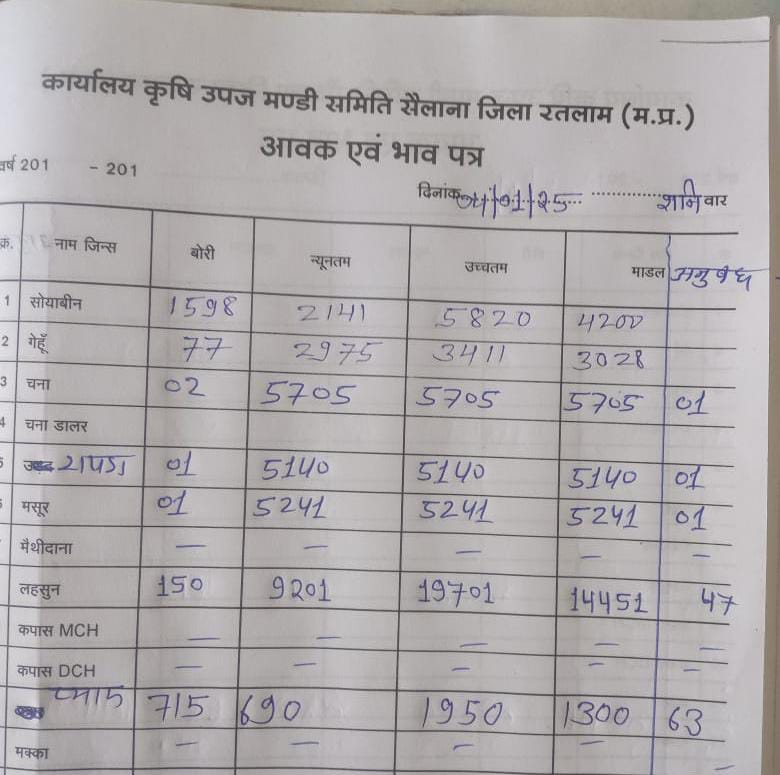 कार्यालय कृषि उपज मण्डी समिति सैलाना जिला रतलाम (म.प्र.)
आवक एवं भाव पत्र
वर्ष 201 - 201
दिनांक /01/25 शनि वार
क्रं. नाम जिन्स बोरी न्यूनतम उच्चतम माडल अनुबंध
1 सोयाबीन 1598 2141 5820 4200
2 गेहूँ 77 2975 3411 3028
3 चना 02 5705 5705 5705 01
4 चना डालर
01 5140 5140 5140 01
मसूर 01 5241 5241 5241 01
मैथीदाना — — — — —
लहसुन 150 9201 19701 14451 47
कपास MCH — — — — —
कपास DCH — — — — —
प्याज 715 690 1950 1300 63
मक्का — — — — —